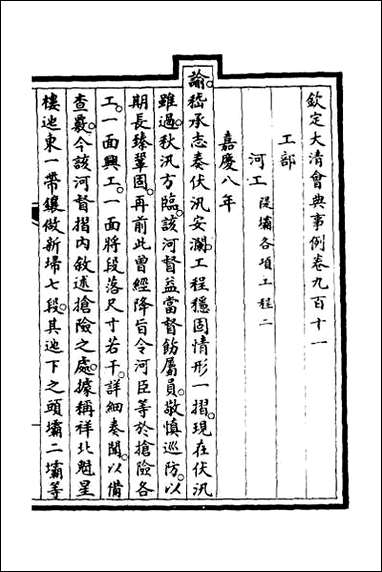 欽定大清會典事例卷九百十一
工部
河工隄壩各項工程二
嘉慶八年
諭嵇承志奏伏汛安瀾工程穩固情形一摺現在伏汛
雖過秋汛方臨該河督益當督飭屬員敬慎巡防以
期長臻鞏固再前此曾經降旨令河臣等於搶險各
工一面興工一面將段落尺寸若干詳細奏聞以備
查覈今該河督摺內敘述搶險之處據稱祥北魁星
樓迆東一帶鑲做新埽七段其迆下之頭壩二壩等